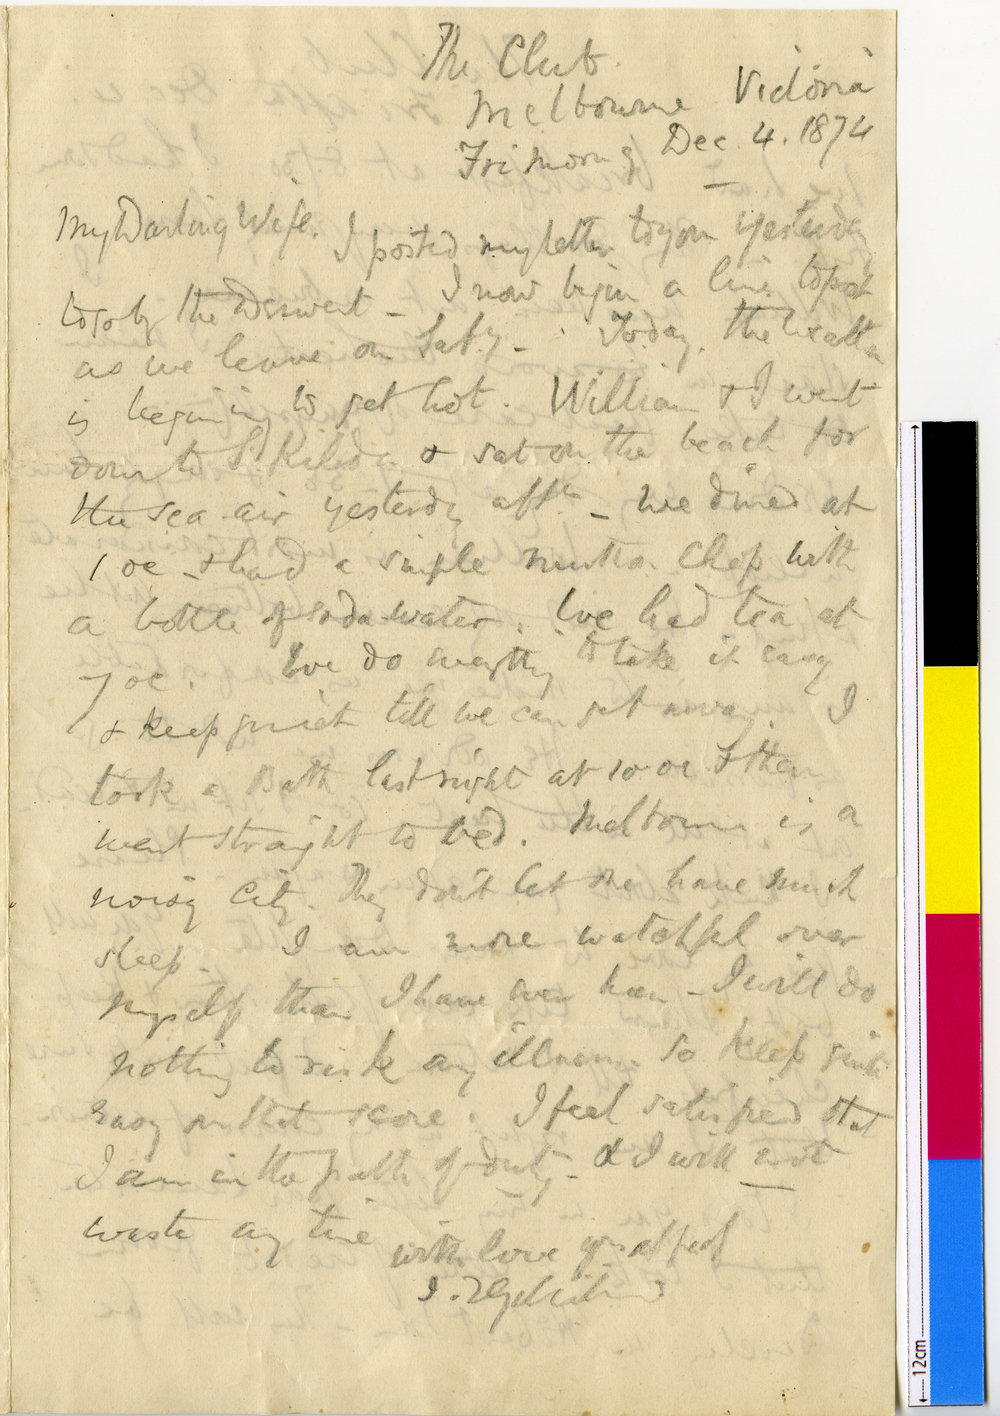 The Club.
Melbourne Victoria
Fri Morng Dec. 4. 1874
My Darling Wife. I posted my letter to you yesterday
to go by the Derwent – I now begin a line to post
as we leave on Saty – Today. the weather
is beginning to get hot. William & I went
down to St Kilda & sat on the beach for
the sea air yesterdy aftn – We dined at
1 oc – & had a simple mutton Chop with
a bottle of soda water. We had tea at
7 oc. We do everything to take it easy
& keep quiet till we can get away. I
took a Bath last night at 10 oc & then
went straight to bed. Melbourne is a
noisy City. They don't let one have much
sleep. I am more watchful over
myself than I have ever been – I will do
nothing to risk any illness. So keep quite
easy on that score. I feel satisfied that
I am in the path of duty – & I will not
waste any time with love yr affect
12cm